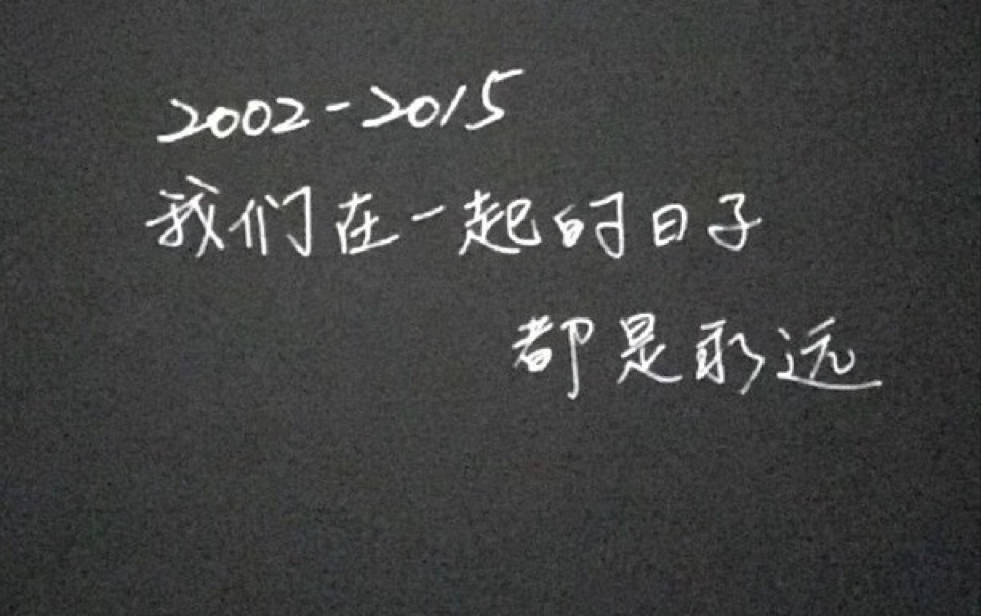 2002-2015
我们在一起的日子
都是永远